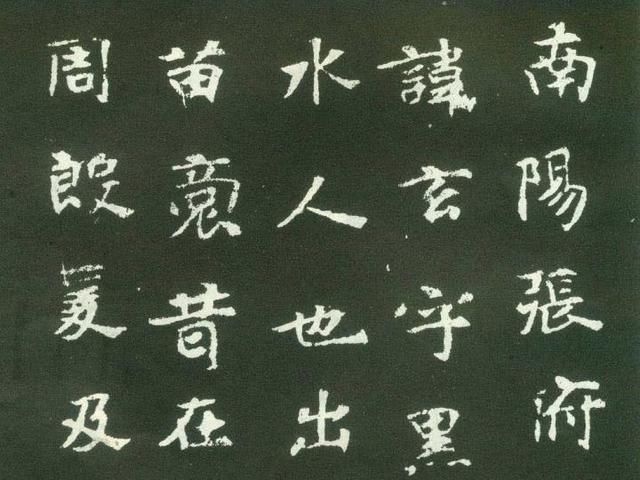 南陽張府
諱玄字黑
水人也出
苗裔昔在
周殷爰及